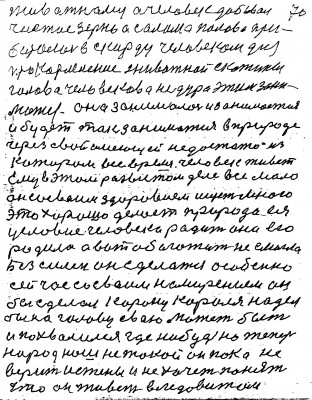 животному а человек добывал 70
чистое зерно а салома полова при-
биралои в скирду человеком для
прокармление животной скотины
голова человекова не дура этим зани-
может. она занималои и занимается
и будет также заниматся в природе
через свой имеющей недостаток из
котором все время человек живет
ему в этом развитом деле все мало
он своим здоровием ищет много
это хорошо делает природа ея
целовие человека радит она его
родила а вот обагожит не смогла
без силен он сделался особенно
сейчас со своим намирением он
бы сделал Карону Кароля надел
бы на голову сваю может быть
и похвалился где нибудь но теперь
народ наш не токой он пока не
верит истены и не хочет понять
что он живет в ледовитом